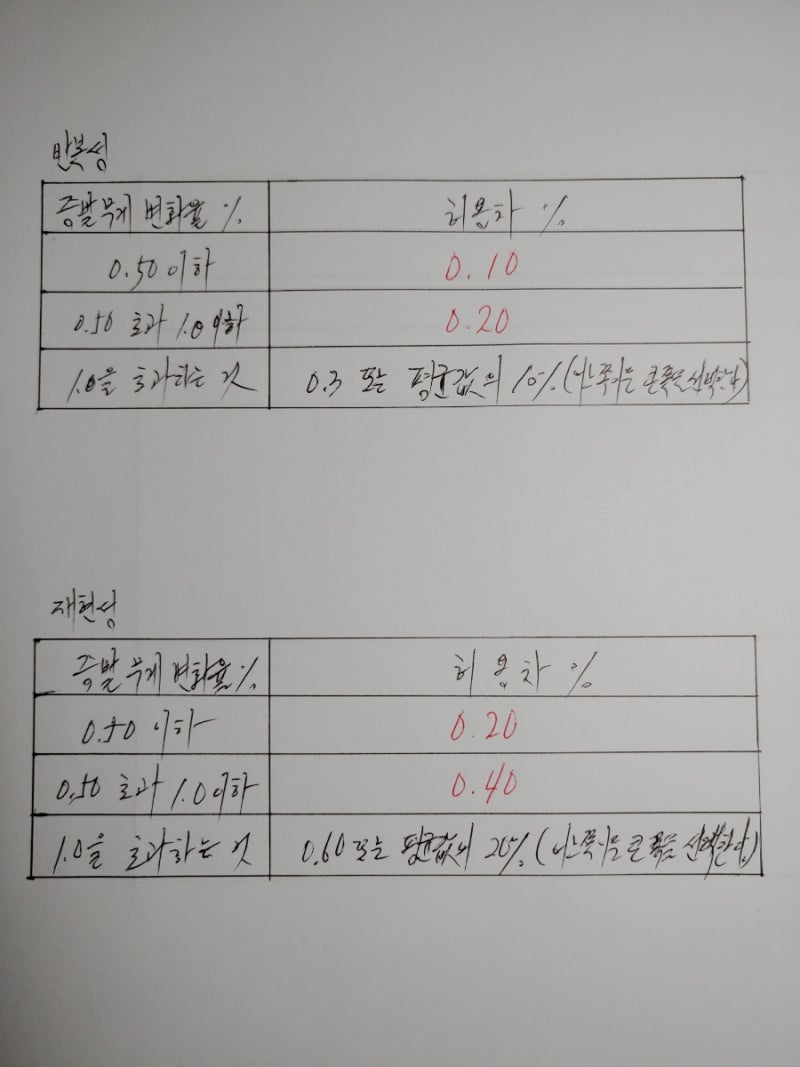 반복성
증발무게 변화율 % 허용차 %
0.50 이하 0.10
0.50 초과 1.0 이하 0.20
1.0을 초과하는 것 0.3 또는 평균값의 10% (어느쪽이든 큰쪽을 선택한다)
재현성
증발무게 변화율 % 허용차 %
0.50 이하 0.20
0.50 초과 1.0 이하 0.40
1.0을 초과하는 것 0.60 또는 평균값의 20% (어느쪽이든 큰 쪽을 선택한다.)